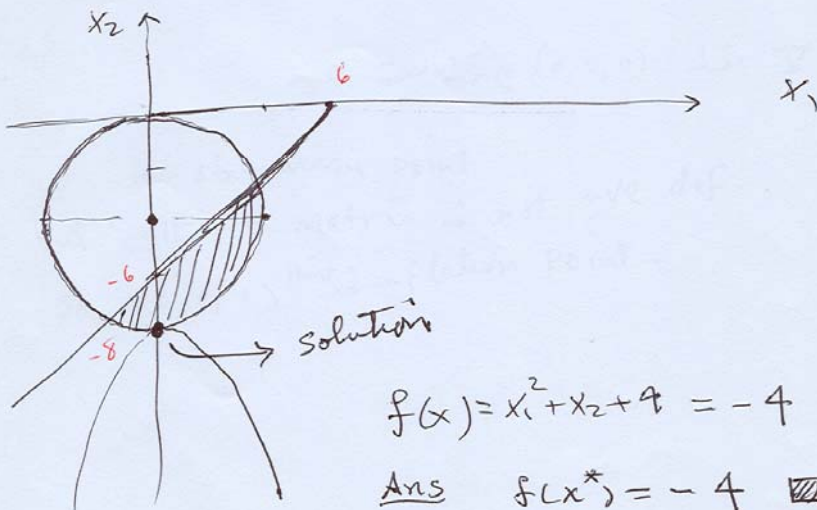 x₂
6
x₁
-6
-8
solution
f(x) = x₁² + x₂ + 4 = -4
Ans f(x*) = -4